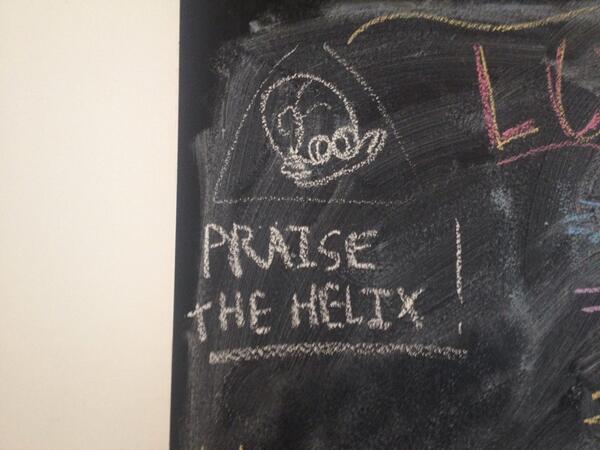 PRAISE
THE HELIX!
LU